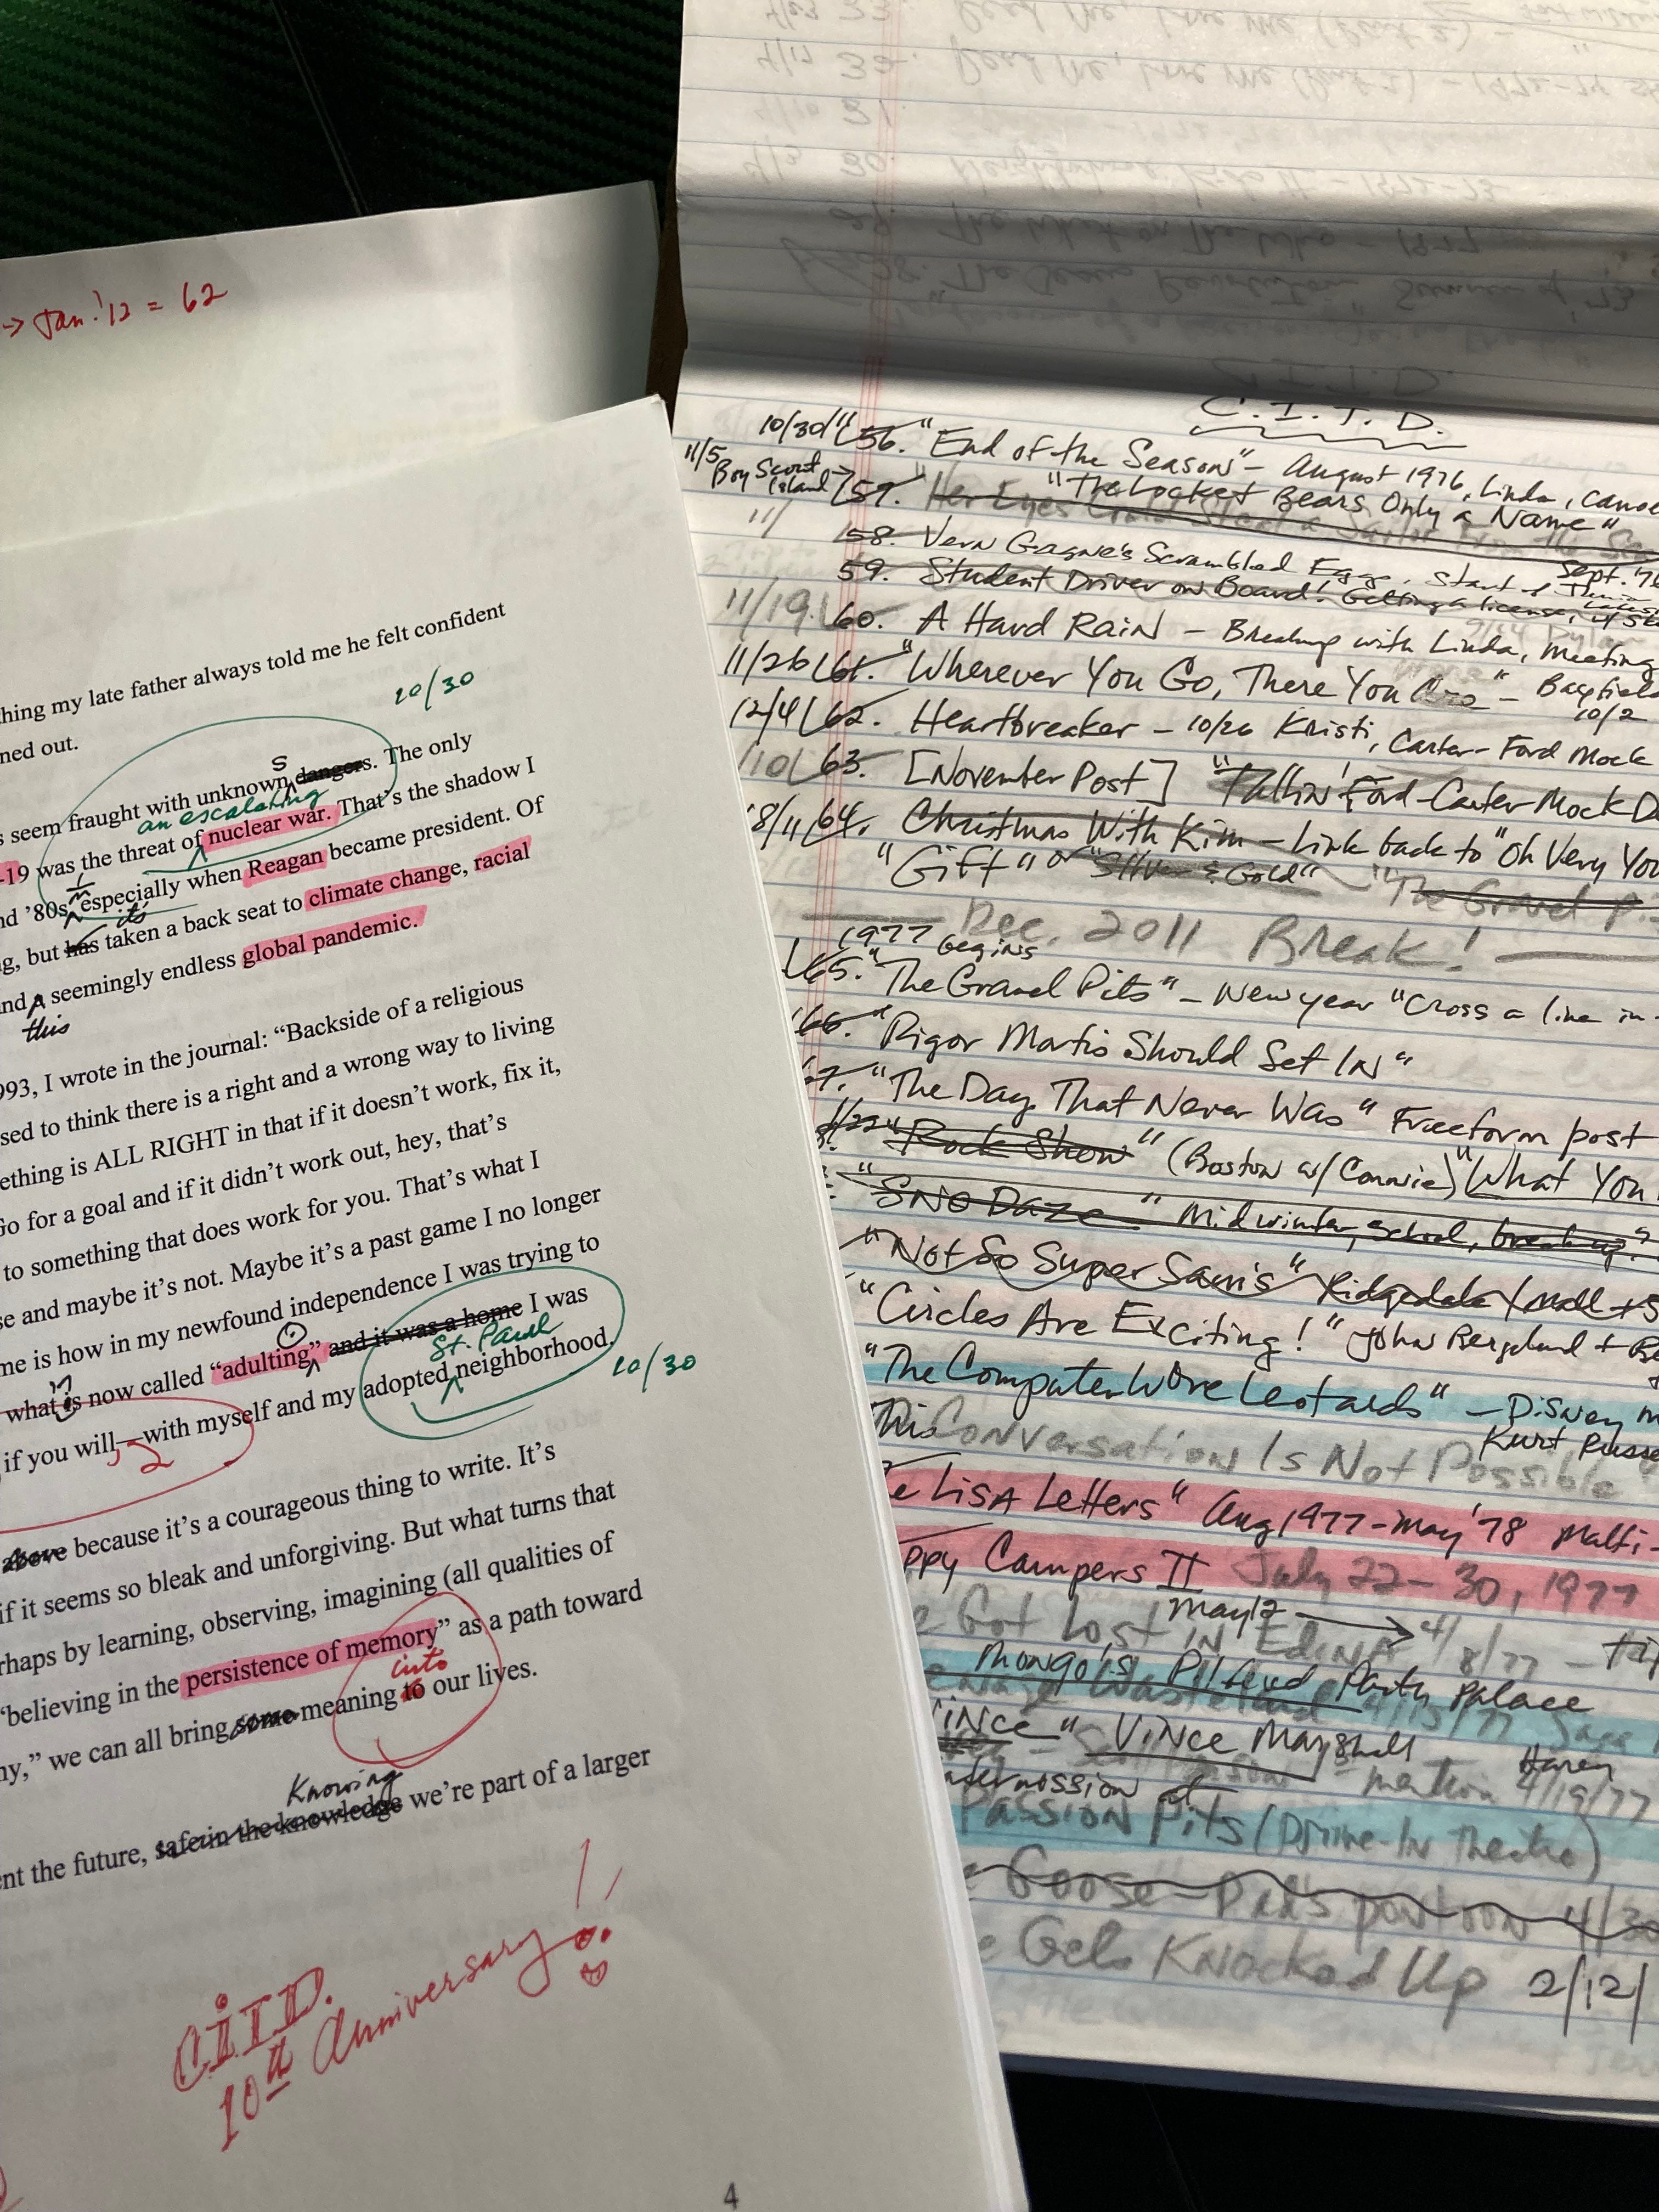 -> Jan. '12 = 62
thing my late father always told me he felt confident
ned out.
10/30
s seem fraught with unknowns dangers. The only
an escalating
-19 was the threat of nuclear war. That's the shadow I
nd '80s, especially when Reagan became president. Of
its
g, but has taken a back seat to climate change, racial
nd a seemingly endless global pandemic.
this
993, I wrote in the journal: "Backside of a religious
sed to think there is a right and a wrong way to living
ething is ALL RIGHT in that if it doesn't work, fix it,
Go for a goal and if it didn't work out, hey, that's
to something that does work for you. That's what I
se and maybe it's not. Maybe it's a past game I no longer
me is how in my newfound independence I was trying to
what is now called "adulting" and it was a home I was
St. Paul
if you will,—with myself and my adopted neighborhood.
10/30
2
above because it's a courageous thing to write. It's
if it seems so bleak and unforgiving. But what turns that
rhaps by learning, observing, imagining (all qualities of
"believing in the persistence of memory" as a path toward
into
ny," we can all bring some meaning to our lives.
Knowing
nt the future, safe in the knowledge we're part of a larger
C.I.T.D.
10th Anniversary!
4
C.I.T.D.
10/30/11 56. "End of the Season" - August 1976, Linda, canoe
11/5 Boy Scout Island -> 57. "The Locket Bears Only a Name"
Her Eyes Could Steal a Sailor From the Sea
11/ 58. Vern Gagne's Scrambled Eggs, start of Sept. '76
59. Student Driver on Board! Getting a license,
11/19 60. A Hard Rain - Breaking with Linda, Meeting
11/26 61. "Wherever You Go, There You Are" - Bayfield
10/2
12/4 62. Heartbreaker - 10/26 Kristi, Carter-Ford Mock
/10 63. [November Post] "Talkin' Ford-Carter Mock D
18/11 64. Christmas With Kim - Link back to "Oh Very You
"Gift" or "Silver & Gold" "The Gravel Pi
Dec. 2011 Break!
1977 begins
65. "The Gravel Pits" - New year "Cross a line in
66. "Rigor Mortis Should Set In"
67. "The Day That Never Was" Freeform post
1/22 "Rock Show" (Boston w/Connie) "What You
"Sno Daze" Midwinter, school, breakup.
"Not So Super Sam's" Ridgedale Mall
"Circles Are Exciting!" John Bergland +
"The Computer Wore Leotards" - Disney
Kurt Russe
This Conversation Is Not Possible
e Lisa Letters" Aug 1977-May '78 Multi-
ppy Campers II July 22-30, 1977
May 12 -> 4/8/77
e Got Lost IN Edina
Mongo's Pilfered Party Palace
Wasteland 4/15/77
Vince" Vince Marshall
mention 4/19/77
Intermission at
Passion Pits (Drive-In Theatre)
e Goose - Dad's pontoon 4/30
e Gets Knocked Up 2/12/